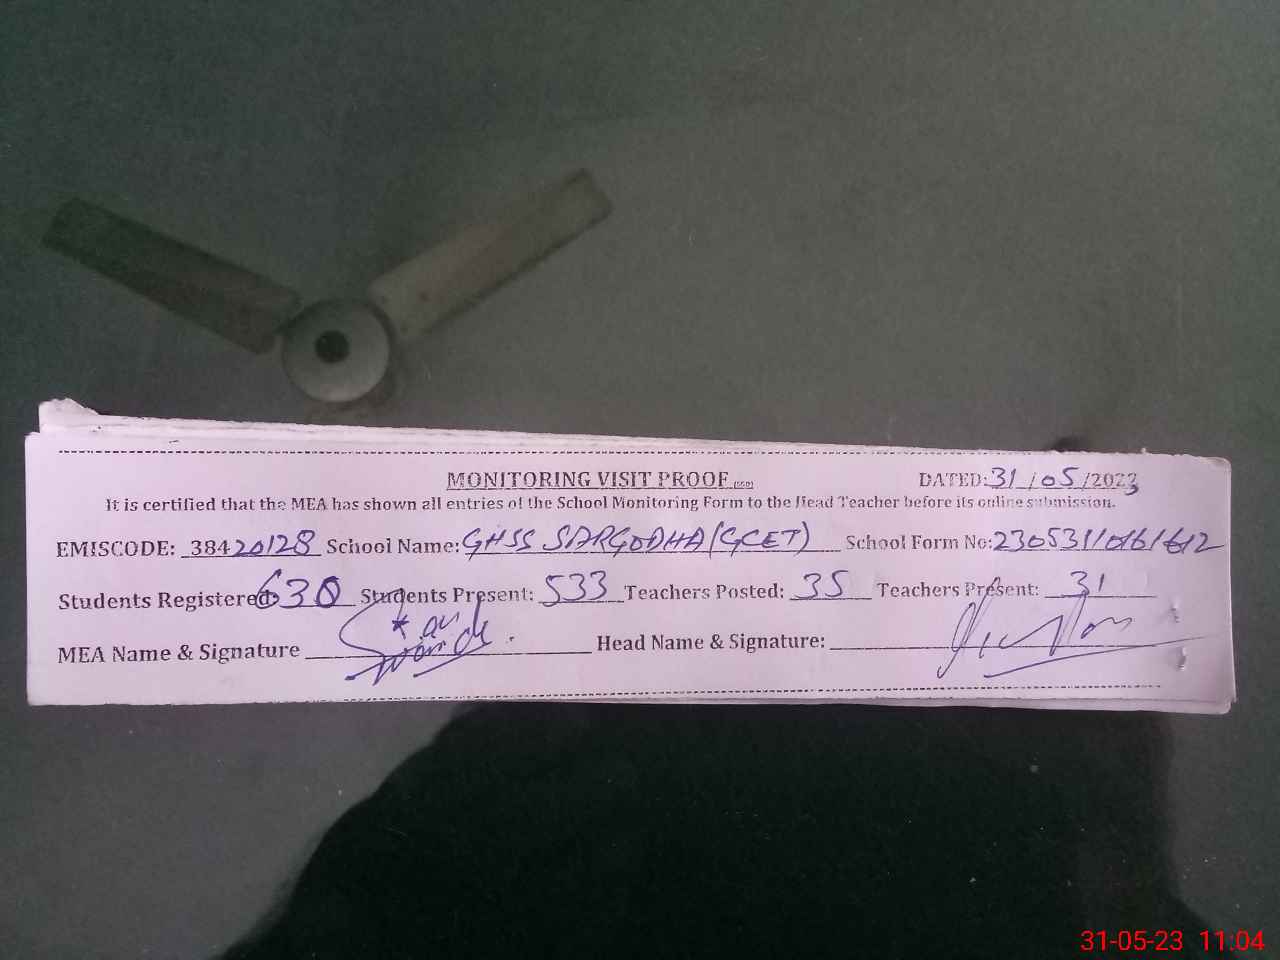 MONITORING VISIT PROOF DATED: 31/05/2023
It is certified that the MEA has shown all entries of the School Monitoring Form to the Head Teacher before its online submission.
EMISCODE: 38420128 School Name: GHSS SARGODHA (GCET) School Form No: 23053110161612
Students Registered: 630 Students Present: 533 Teachers Posted: 35 Teachers Present: 31
MEA Name & Signature Head Name & Signature:
31-05-23 11:04